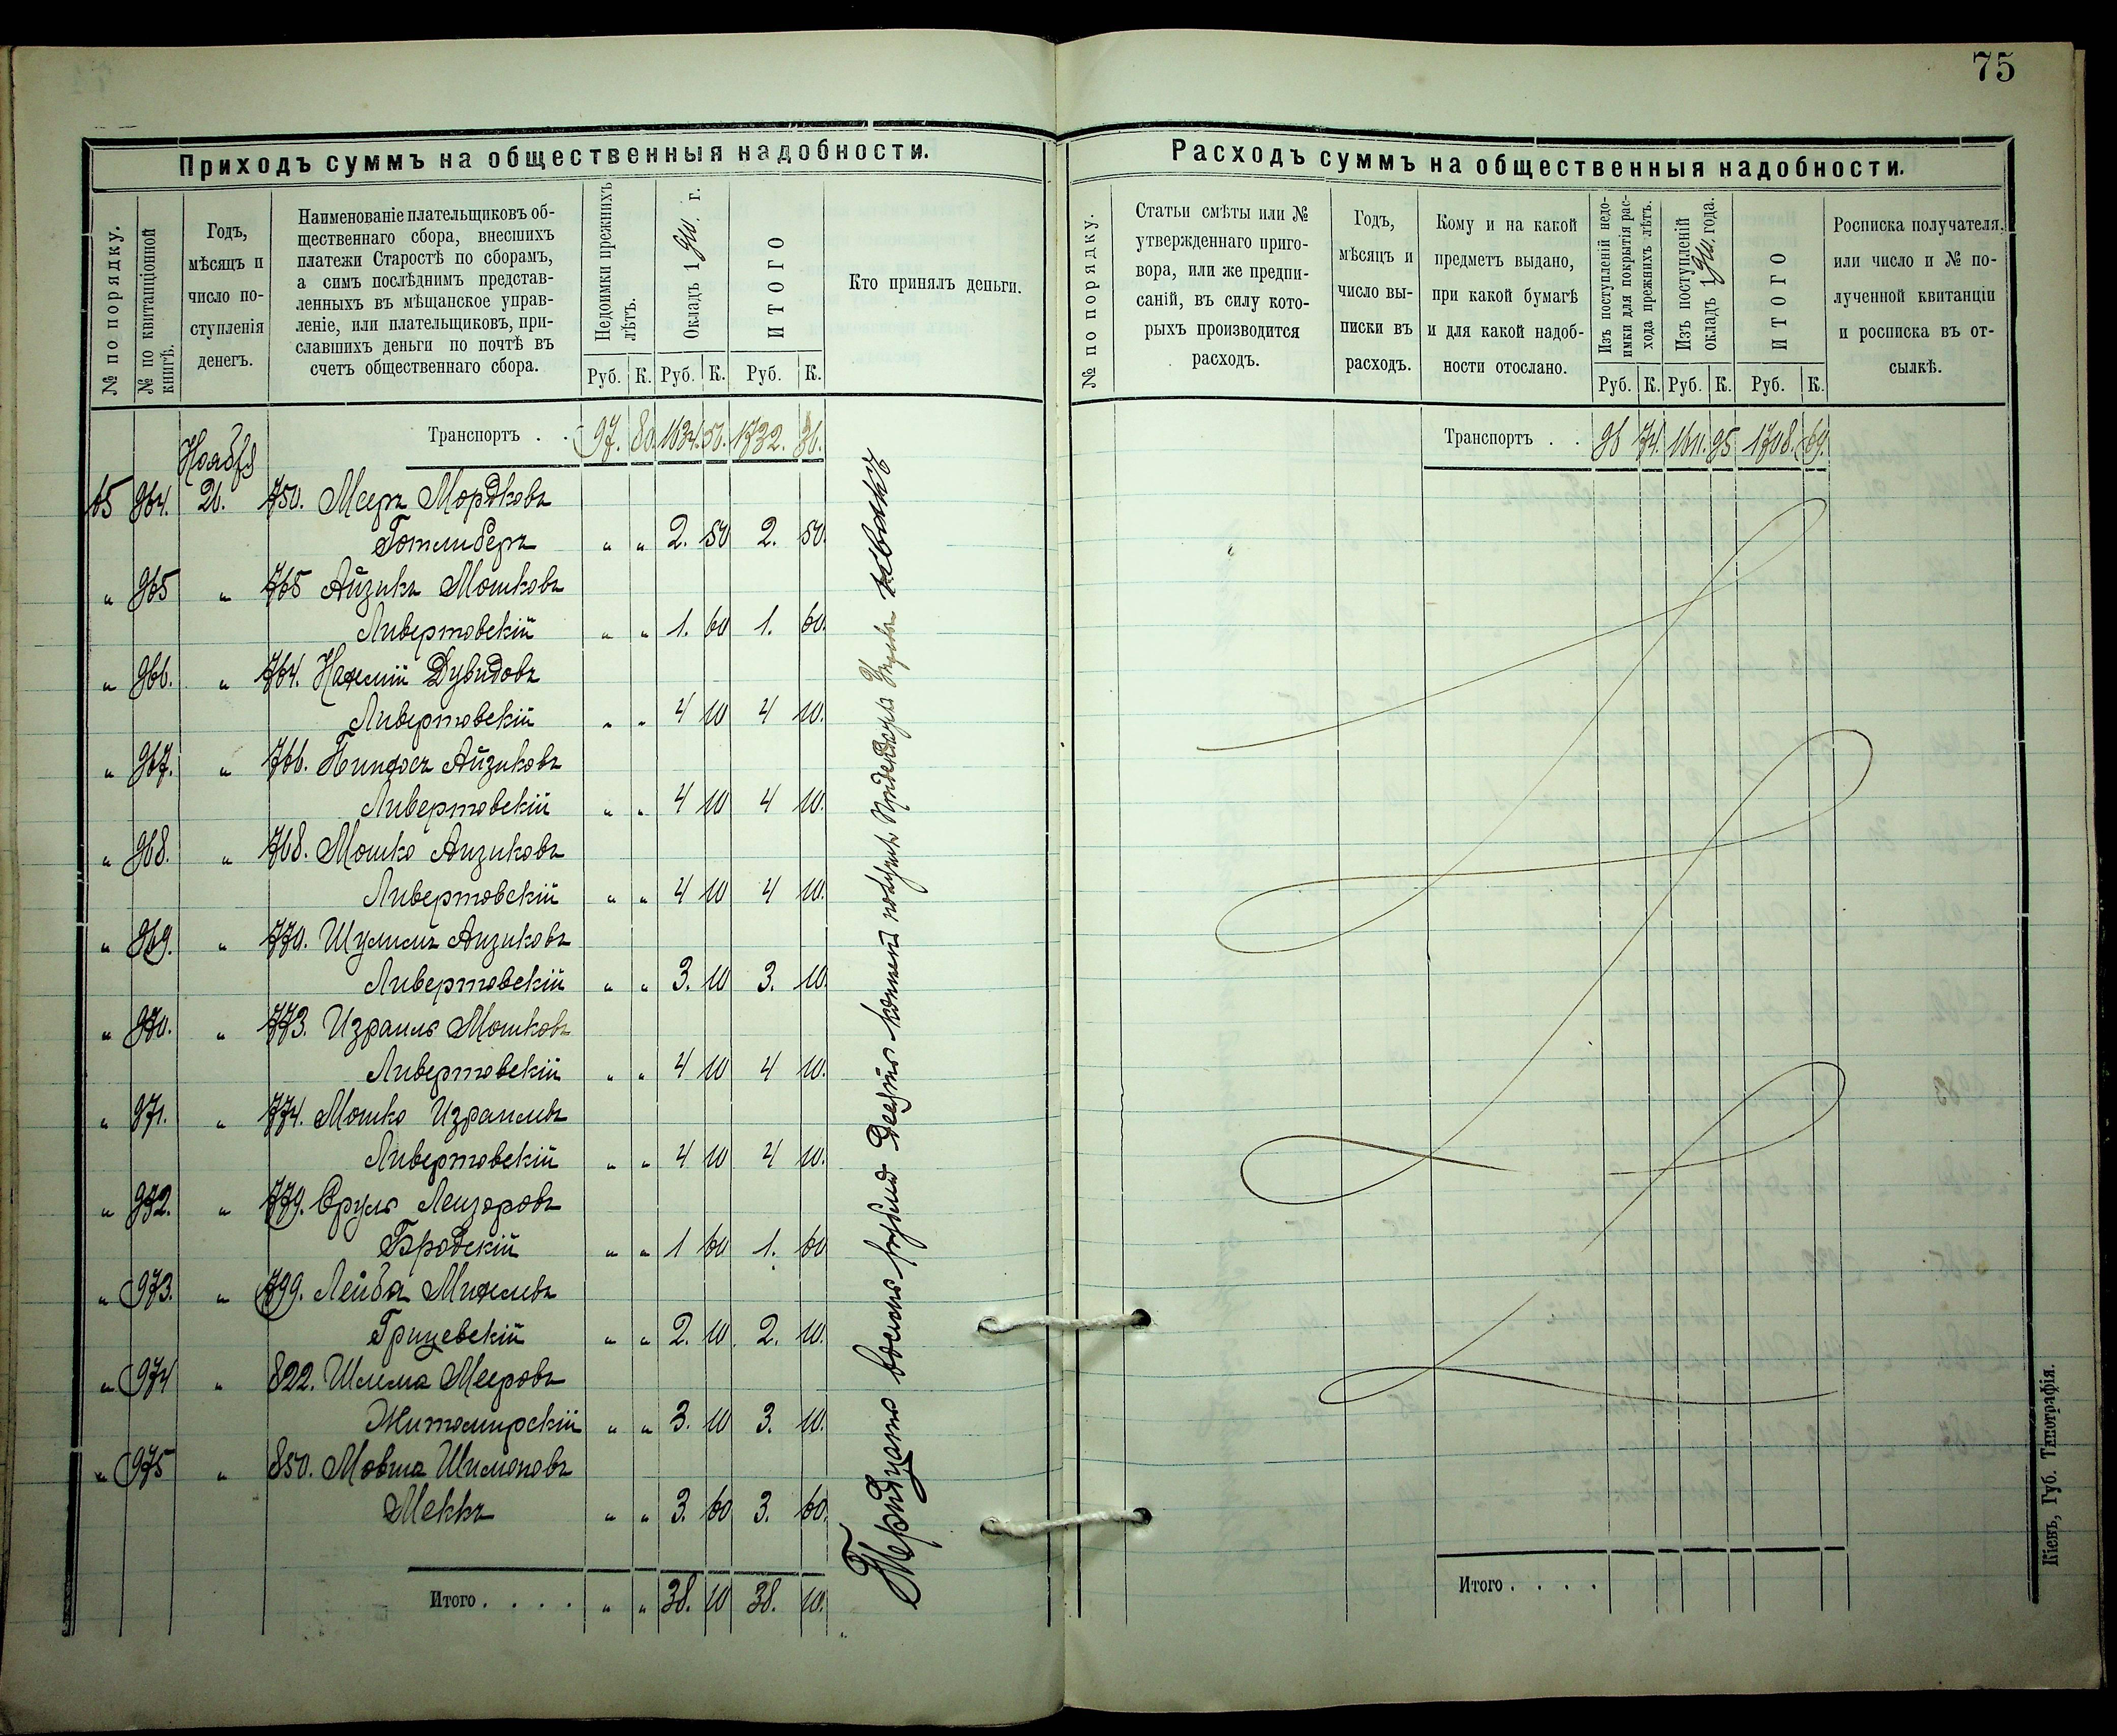 75
Приходъ суммъ на общественныя надобности.
№ по порядку.
№ по квитанціонной книгѣ.
Годъ,
мѣсяцъ и
число по-
ступленія
денегъ.
Наименованіе плательщиковъ об-
щественнаго сбора, внесшихъ
платежи Старостѣ по сборамъ,
а симъ послѣднимъ представ-
ленныхъ въ мѣщанское управ-
леніе, или плательщиковъ, при-
славшихъ деньги по почтѣ въ
счетъ общественнаго сбора.
Недоимки прежнихъ лѣтъ.
Окладъ 1910. г.
ИТОГО
Кто принялъ деньги.
Руб. К. Руб. К. Руб. К.
Транспортъ . . 97. 80. 1634. 56. 1732. 36.
Ноября
65 964. 26. 750. Мееръ Мордковъ
Готлиберъ " " 2. 50 2. 50.
" 965 " 765 Айзикъ Мошковъ
Ливертовскій " " 1. 60 1. 60.
" 966. " 764. Нахмій Дувидовъ
Ливертовскій " " 4 10 4 10.
" 967. " 766. Пинхосъ Айзиковъ
Ливертовскій " " 4 10 4 10.
" 968. " 768. Мошко Аизиковъ
Ливертовскій " " 4 10 4 10.
" 969. " 770. Шулимъ Аизиковъ
Ливертовскій " " 3. 10 3. 10.
" 970. " 773. Израиль Мошковъ
Ливертовскій " " 4 10 4 10.
" 971. " 774. Мошко Израилевъ
Ливертовскій " " 4 10 4 10.
" 972. " 779. Сруль Лейзоровъ
Бродскій " " 1 60 1. 60
" 973. " 799. Лейба Михелевъ
Грицевскій " " 2. 10. 2. 10.
" 974 " 822. Шлема Мееровъ
Житомирскій " " 3. 10 3. 10.
" 975 " 850. Мовша Шимоновъ
Меккъ " " 3. 60 3. 60.
Итого . . . . " " 38. 10 38. 10.
Тридцать восемь рублей десять копеекъ получилъ
Расходъ суммъ на общественныя надобности.
№ по порядку.
Статьи смѣты или №
утвержденнаго приго-
вора, или же предпи-
саній, въ силу кото-
рыхъ производится
расходъ.
Годъ,
мѣсяцъ и
число вы-
писки въ
расходъ.
Кому и на какой
предметъ выдано,
при какой бумагѣ
и для какой надоб-
ности отослано.
Изъ поступленій недо-
имки для покрытія рас-
хода прежнихъ лѣтъ.
Изъ поступленій
окладъ 1910. года.
ИТОГО
Росписка получателя,
или число и № по-
лученной квитанціи
и росписка въ от-
сылкѣ.
Руб. К. Руб. К. Руб. К.
Транспортъ . . 96 74. 1611. 95 1708. 69.
Итого . . . .
Кіевъ, Губ. Типографія.